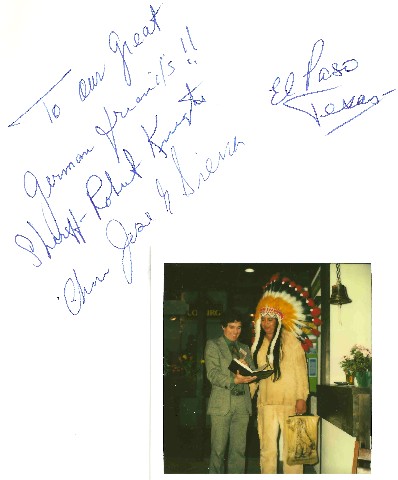 To our great
German friends!!
Sheriff Robert Knight
Jose G Sierra
El Paso
Texas